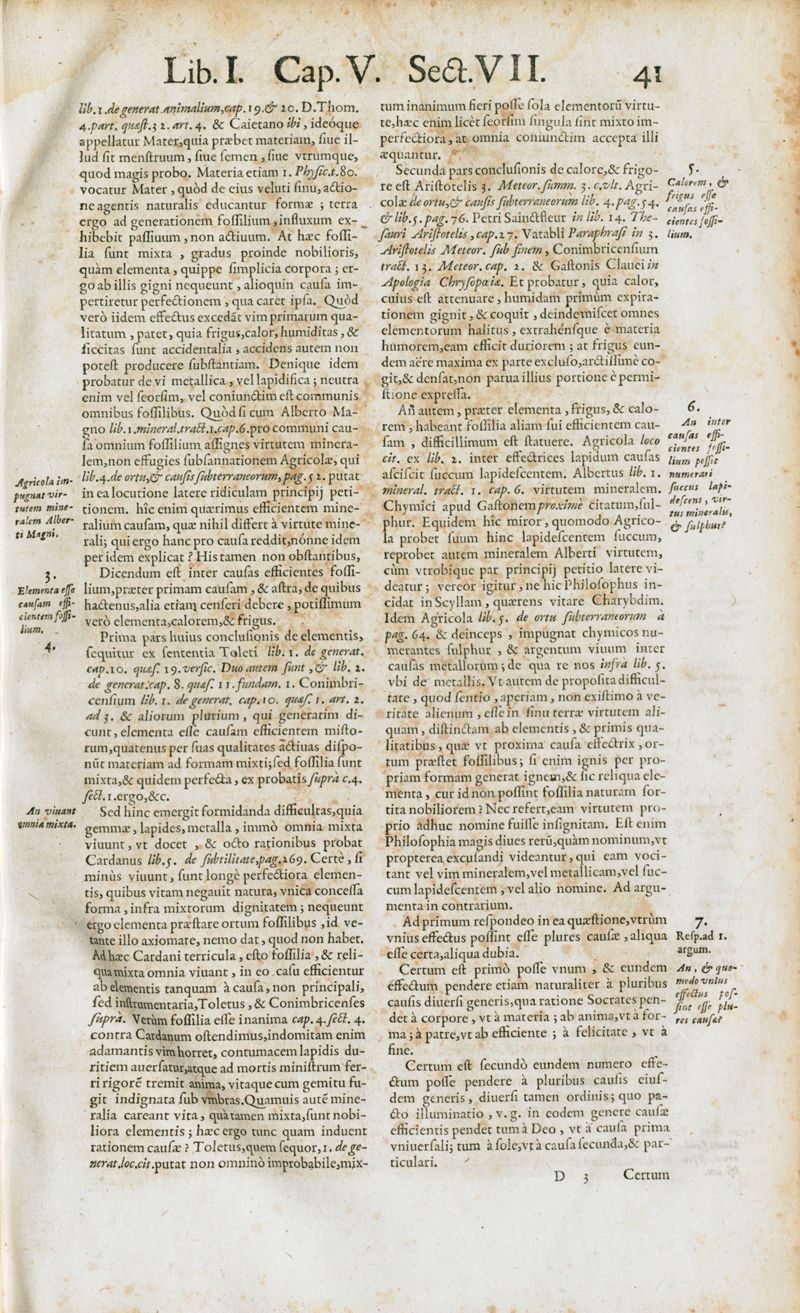 Lib. I. Cap. V. Sect. VII. 41
lib. 1. de generat. animalium, cap. 19. & 20. D. Thom.
4. part. quæst. 32. art. 4. & Caietano ibi, ideóque
appellatur Mater, quia præbet materiam, siue il-
lud sit menstruum, siue semen, siue vtrumque,
quod magis probo. Materia etiam 1. Physic. t. 80.
vocatur Mater, quòd de eius veluti sinu, actio-
ne agentis naturalis educantur formæ; terra
ergo ad generationem fossilium, influxum ex-
hibebit passiuum, non actiuum. At hæc fossi-
lia sunt mixta, gradus proinde nobilioris,
quàm elementa, quippe simplicia corpora; er-
go ab illis gigni nequeunt, alioquin causa im-
pertiretur perfectionem, qua caret ipsa. Quòd
verò iidem effectus excedãt vim primarum qua-
litatum, patet, quia frigus, calor, humiditas, &
siccitas sunt accidentalia, accidens autem non
potest producere substantiam. Denique idem
probatur de vi metallica, vel lapidifica; neutra
enim vel seorsim, vel coniunctim est communis
omnibus fossilibus. Quòd si cum Alberto Ma-
gno lib. 1. mineral. tract. 1. cap. 6. pro communi cau-
sa omnium fossilium assignes virtutem minera-
lem, non effugies subsannationem Agricolæ, qui
lib. 4. de ortu, & causis subterraneorum, pag. 52. putat
in ea locutione latere ridiculam principij peti-
tionem. hîc enim quærimus efficientem mine-
ralium causam, quæ nihil differt à virtute mine-
rali; qui ergo hanc pro causa reddit, nónne idem
per idem explicat? His tamen non obstantibus,
Dicendum est inter causas efficientes fossi-
lium, præter primam causam, & astra, de quibus
hactenus, alia etiam censeri debere, potissimum
verò elementa, calorem, & frigus.
Prima pars huius conclusionis de elementis,
sequitur ex sententia Toleti lib. 1. de generat.
cap. 10. quæs. 19. versic. Duo autem sunt, & lib. 2.
de generat. cap. 8. quæs. 11. fundam. 1. Conimbri-
censium lib. 1. de generat. cap. 10. quæs. 1. art. 2.
ad 3. & aliorum plurium, qui generatim di-
cunt, elementa esse causam efficientem misto-
rum, quatenus per suas qualitates actiuas dispo-
nũt materiam ad formam mixti; sed fossilia sunt
mixta, & quidem perfecta, ex probatis suprà c. 4.
sect. 1. ergo, &c.
Sed hinc emergit formidanda difficultas, quia
gemmæ, lapides, metalla, immò omnia mixta
viuunt, vt docet, & octo rationibus probat
Cardanus lib. 5. de subtilitate, pag. 269. Certè, si
minùs viuunt, sunt longè perfectiora elemen-
tis, quibus vitam negauit natura, vnica concessa
forma, infra mixtorum dignitatem; nequeunt
ergo elementa præstare ortum fossilibus, id ve-
tante illo axiomate, nemo dat, quod non habet.
Ad hæc Cardani terricula, esto fossilia, & reli-
qua mixta omnia viuant, in eo casu efficientur
ab elementis tanquam à causa, non principali,
sed instrumentaria, Toletus, & Conimbricenses
suprà. Verùm fossilia esse inanima cap. 4. sect. 4.
contra Cardanum ostendimus, indomitam enim
adamantis vim horret, contumacem lapidis du-
ritiem auersatur, atque ad mortis ministrum fer-
ri rigorē tremit anima, vitaque cum gemitu fu-
git indignata sub vmbras. Quamuis autē mine-
ralia careant vita, quà tamen mixta, sunt nobi-
liora elementis; hæc ergo tunc quam induent
rationem causæ? Toletus, quem sequor, 1. de ge-
nerat. loc. cit. putat non omninò improbabile, mix-
Agricola im-
pugnat vir-
tutem mine-
ralem Alber-
ti Magni.
3.
Elementa esse
causam effi-
cientem fossi-
lium.
4.
An viuant
omnia mixta.
tum inanimum fieri posse sola elementorũ virtu-
te, hæc enim licèt seorsim singula sint mixto im-
perfectiora, at omnia coniunctim accepta illi
æquantur.
Secunda pars conclusionis de calore, & frigo-
re est Aristotelis 3. Meteor. summ. 3. c. vlt. Agri-
colæ de ortu, & causis subterraneorum lib. 4. pag. 54.
& lib. 5. pag. 76. Petri Sainctfleur in lib. 14. The-
sauri Aristotelis, cap. 27. Vatabli Paraphrasi in 3.
Aristotelis Meteor. sub finem, Conimbricensium
tract. 13. Meteor. cap. 2. & Gastonis Clauei in
Apologia Chrysopœiæ. Et probatur, quia calor,
cuius est attenuare, humidam primùm expira-
tionem gignit, & coquit, deinde miscet omnes
elementorum halitus, extrahénsque è materia
humorem, eam efficit duriorem; at frigus eun-
dem aëre maxima ex parte excluso, arctissimè co-
git, & densat, non parua illius portione è permi-
stione expressa.
An autem, præter elementa, frigus, & calo-
rem, habeant fossilia aliam sui efficientem cau-
sam, difficillimum est statuere. Agricola loco
cit. ex lib. 2. inter effectrices lapidum causas
asciscit succum lapidescentem. Albertus lib. 1.
mineral. tract. 1. cap. 6. virtutem mineralem.
Chymici apud Gastonem proximè citatum, sul-
phur. Equidem hîc miror, quomodo Agrico-
la probet suum hinc lapidescentem succum,
reprobet autem mineralem Alberti virtutem,
cùm vtrobique par principij petitio latere vi-
deatur; vereor igitur, ne hic Philosophus in-
cidat in Scyllam, quærens vitare Charybdim.
Idem Agricola lib. 5. de ortu subterraneorum à
pag. 64. & deinceps, impugnat chymicos nu-
merantes sulphur, & argentum viuum inter
causas metallorum; de qua re nos infrà lib. 5.
vbi de metallis. Vt autem de proposita difficul-
tate, quod sentio, aperiam, non existimo à ve-
ritate alienum, esse in sinu terræ virtutem ali-
quam, distinctam ab elementis, & primis qua-
litatibus, quæ vt proxima causa effectrix, or-
tum præstet fossilibus; si enim ignis per pro-
priam formam generat ignem, & sic reliqua ele-
menta, cur id non possint fossilia naturam sor-
tita nobiliorem? Nec refert, eam virtutem pro-
prio adhuc nomine fuisse insignitam. Est enim
Philosophia magis diues rerũ, quàm nominum, vt
propterea excusandi videantur, qui eam voci-
tant vel vim mineralem, vel metallicam, vel suc-
cum lapidescentem, vel alio nomine. Ad argu-
menta in contrarium.
Ad primum respondeo in ea quæstione, vtrùm
vnius effectus possint esse plures causæ, aliqua
esse certa, aliqua dubia.
Certum est primò posse vnum, & eundem
effectum pendere etiam naturaliter à pluribus
causis diuersi generis, qua ratione Socrates pen-
det à corpore, vt à materia; ab anima, vt à for-
ma; à patre, vt ab efficiente; à felicitate, vt à
fine.
Certum est secundò eundem numero effe-
ctum posse pendere à pluribus causis eius-
dem generis, diuersi tamen ordinis; quo pa-
cto illuminatio, v. g. in eodem genere causæ
efficientis pendet tum à Deo, vt à causa prima
vniuersali; tum à sole, vt à causa secunda, & par-
ticulari.
5.
Calorem, &
frigus esse
causas effi-
cientes fossi-
lium.
6.
An inter
causas effi-
cientes fossi-
lium possit
numerari
succus lapi-
descens, vir-
tus mineralis,
& sulphur?
7.
Resp. ad 1.
argum.
An, & quo-
modo vnius
effectus pos-
sint esse plu-
res causæ?
D 3 Certum